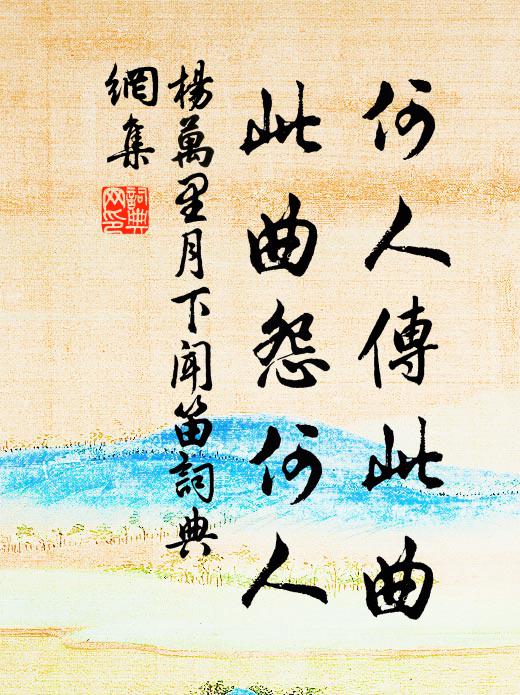 何人傳此曲
此曲怨何人
楊萬里月下闻笛詞典
網集
詞典
网印